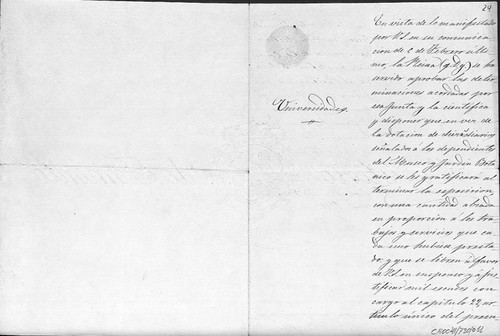 24
Universidades.
En vista de lo manifestado
por V.I. en su comunica-
cion de 2 de Febrero últi-
mo, la Reina (q.D.g.) se ha
servido aprobar las deter-
minaciones acordadas por
esa Junta y la científica
y disponer que en vez de
la dotacion de
señalada á los dependientes
del Museo y Jardin Botá-
nico se les gratificará al
terminar la esposicion,
con una cantidad alzada
en proporcion á los tra-
bajos y servicios que ca-
da uno hubiere presta-
do, y que se libren á favor
de V.I. en suspenso y á jus-
tificar mil escudos con
cargo al capitulo 22, ar-
tículo único del presu